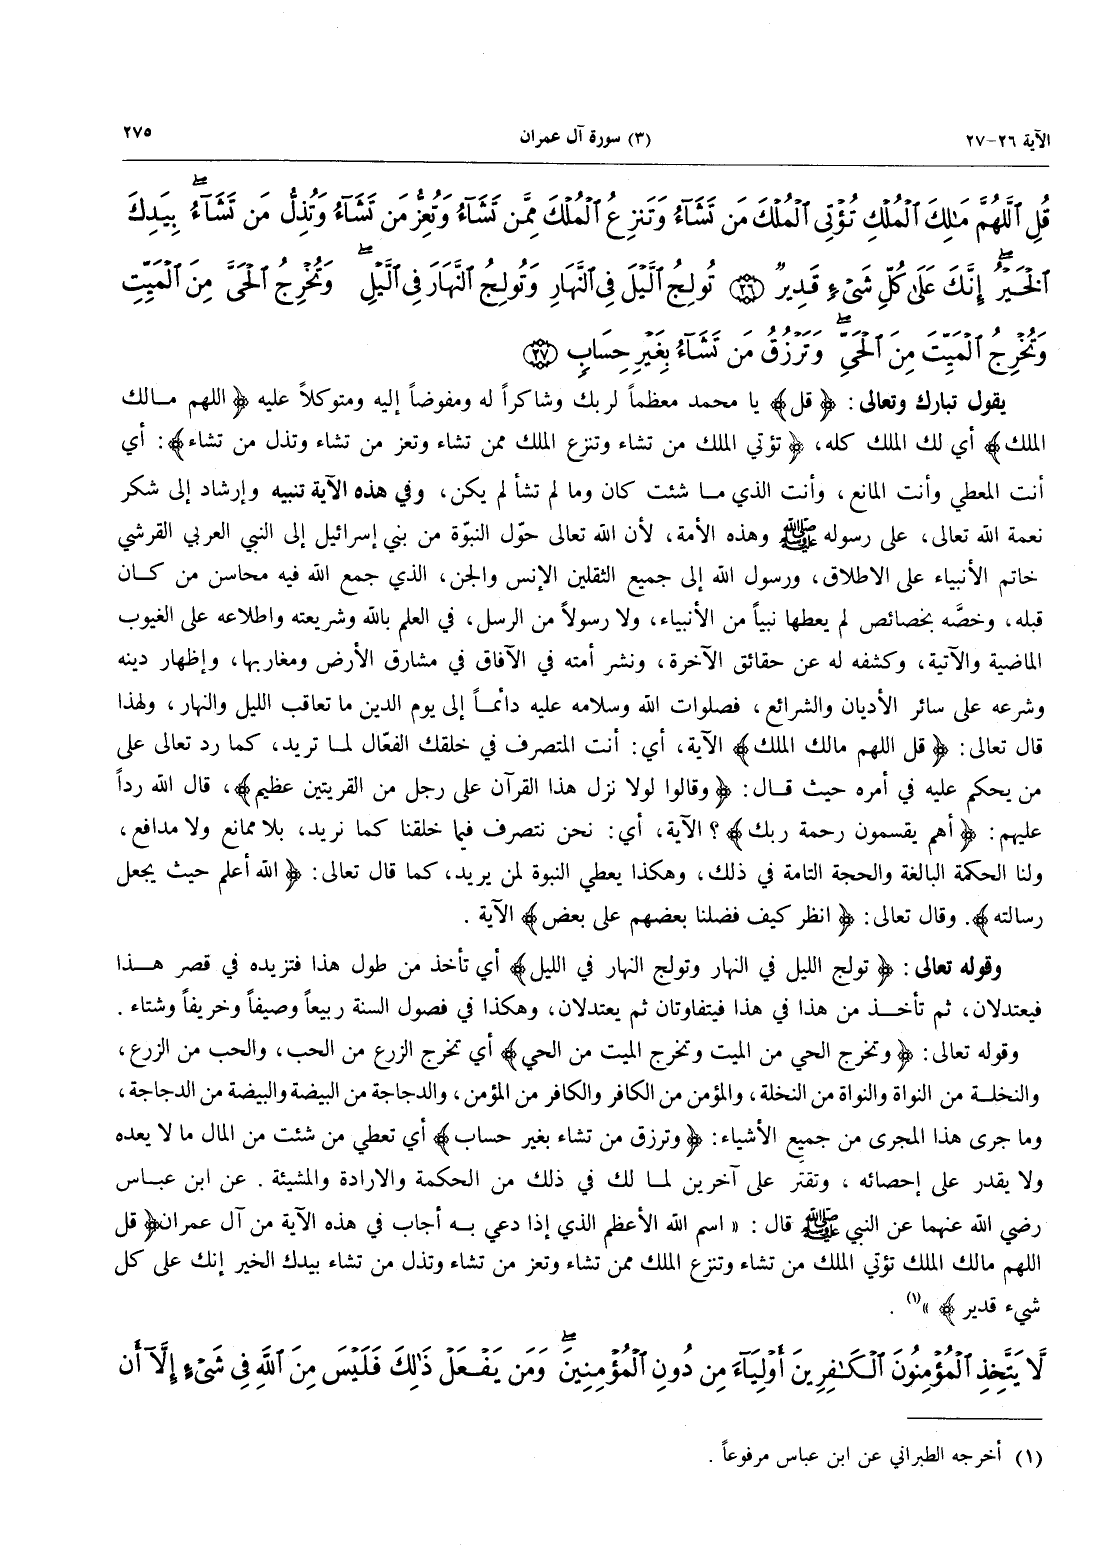 الآية ٢٦-٢٧
(٣) سورة آل عمران
٢٧٥
قُلِ ٱللَّهُمَّ مَٰلِكَ ٱلْمُلْكِ تُؤْتِى ٱلْمُلْكَ مَن تَشَآءُ وَتَنزِعُ ٱلْمُلْكَ مِمَّن تَشَآءُ وَتُعِزُّ مَن تَشَآءُ وَتُذِلُّ مَن تَشَآءُۖ بِيَدِكَ
ٱلْخَيْرُۖ إِنَّكَ عَلَىٰ كُلِّ شَىْءٍ قَدِيرٌ ﴿٢٦﴾ تُولِجُ ٱلَّيْلَ فِى ٱلنَّهَارِ وَتُولِجُ ٱلنَّهَارَ فِى ٱلَّيْلِۖ وَتُخْرِجُ ٱلْحَىَّ مِنَ ٱلْمَيِّتِ
وَتُخْرِجُ ٱلْمَيِّتَ مِنَ ٱلْحَىِّۖ وَتَرْزُقُ مَن تَشَآءُ بِغَيْرِ حِسَابٍ ﴿٢٧﴾
يقول تبارك وتعالى: ﴿قل﴾ يا محمد معظماً لربك وشاكراً له ومفوضاً إليه ومتوكلاً عليه ﴿اللهم مالك
الملك﴾ أي لك الملك كله، ﴿تؤتي الملك من تشاء وتنزع الملك ممن تشاء وتعز من تشاء وتذل من تشاء﴾: أي
أنت المعطي وأنت المانع، وأنت الذي ما شئت كان وما لم تشأ لم يكن، وفي هذه الآية تنبيه وإرشاد إلى شكر
نعمة الله تعالى، على رسوله ﷺ وهذه الأمة، لأن الله تعالى حوّل النبوّة من بني إسرائيل إلى النبي العربي القرشي
خاتم الأنبياء على الاطلاق، ورسول الله إلى جميع الثقلين الإنس والجن، الذي جمع الله فيه محاسن من كان
قبله، وخصَّه بخصائص لم يعطها نبياً من الأنبياء، ولا رسولاً من الرسل، في العلم بالله وشريعته واطلاعه على الغيوب
الماضية والآتية، وكشفه له عن حقائق الآخرة، ونشر أمته في الآفاق في مشارق الأرض ومغاربها، وإظهار دينه
وشرعه على سائر الأديان والشرائع، فصلوات الله وسلامه عليه دائماً إلى يوم الدين ما تعاقب الليل والنهار، ولهذا
قال تعالى: ﴿قل اللهم مالك الملك﴾ الآية، أي: أنت المتصرف في خلقك الفعّال لما تريد، كما رد تعالى على
من يحكم عليه في أمره حيث قال: ﴿وقالوا لولا نزل هذا القرآن على رجل من القريتين عظيم﴾، قال الله رداً
عليهم: ﴿أهم يقسمون رحمة ربك﴾؟ الآية، أي: نحن نتصرف فيما خلقنا كما نريد، بلا ممانع ولا مدافع،
ولنا الحكمة البالغة والحجة التامة في ذلك، وهكذا يعطي النبوة لمن يريد، كما قال تعالى: ﴿الله أعلم حيث يجعل
رسالته﴾. وقال تعالى: ﴿انظر كيف فضلنا بعضهم على بعض﴾ الآية.
وقوله تعالى: ﴿تولج الليل في النهار وتولج النهار في الليل﴾ أي تأخذ من طول هذا فتزيده في قصر هذا
فيعتدلان، ثم تأخذ من هذا في هذا فيتفاوتان ثم يعتدلان، وهكذا في فصول السنة ربيعاً وصيفاً وخريفاً وشتاء.
وقوله تعالى: ﴿وتخرج الحي من الميت وتخرج الميت من الحي﴾ أي تخرج الزرع من الحب، والحب من الزرع،
والنخلة من النواة والنواة من النخلة، والمؤمن من الكافر والكافر من المؤمن، والدجاجة من البيضة والبيضة من الدجاجة،
وما جرى هذا المجرى من جميع الأشياء: ﴿وترزق من تشاء بغير حساب﴾ أي تعطي من شئت من المال ما لا يعده
ولا يقدر على إحصائه، وتقتر على آخرين لما لك في ذلك من الحكمة والارادة والمشيئة. عن ابن عباس
رضي الله عنهما عن النبي ﷺ قال: « اسم الله الأعظم الذي إذا دعي به أجاب في هذه الآية من آل عمران ﴿قل
اللهم مالك الملك تؤتي الملك من تشاء وتنزع الملك ممن تشاء وتعز من تشاء وتذل من تشاء بيدك الخير إنك على كل
شيء قدير﴾ »(١).
لَّا يَتَّخِذِ ٱلْمُؤْمِنُونَ ٱلْكَٰفِرِينَ أَوْلِيَآءَ مِن دُونِ ٱلْمُؤْمِنِينَۖ وَمَن يَفْعَلْ ذَٰلِكَ فَلَيْسَ مِنَ ٱللَّهِ فِى شَىْءٍ إِلَّآ أَن
(١) أخرجه الطبراني عن ابن عباس مرفوعاً.